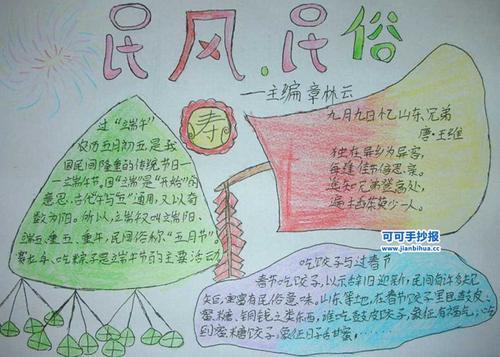 民风.民俗
—主编 章林云
过“端午”
农历五月初五是我
国民间隆重的传统节日—
—端午节。因“端”是“开始”的
意思,古代午与五”通用,又以奇
数为阳。所以,端午又叫端阳、
端五、重五、重午,民间俗称“五月节”。
赛龙舟、吃粽子是端午节的主要活动
寿
九月九日忆山东兄弟
唐:王维
独在异乡为异客,
每逢佳节倍思亲。
遥知兄弟登高处,
遍插茱萸少一人。
可可手抄报
www.jianbihua.cc
吃饺子与过春节
春节吃饺子,以示辞旧迎新,民间有许多
富有民俗意味。山东等地,在春节饺子里包
蜜、糖、铜钱之类东西,谁吃饺子,象征有福气,吃
到蜜糖饺子,象征日子甜蜜,……